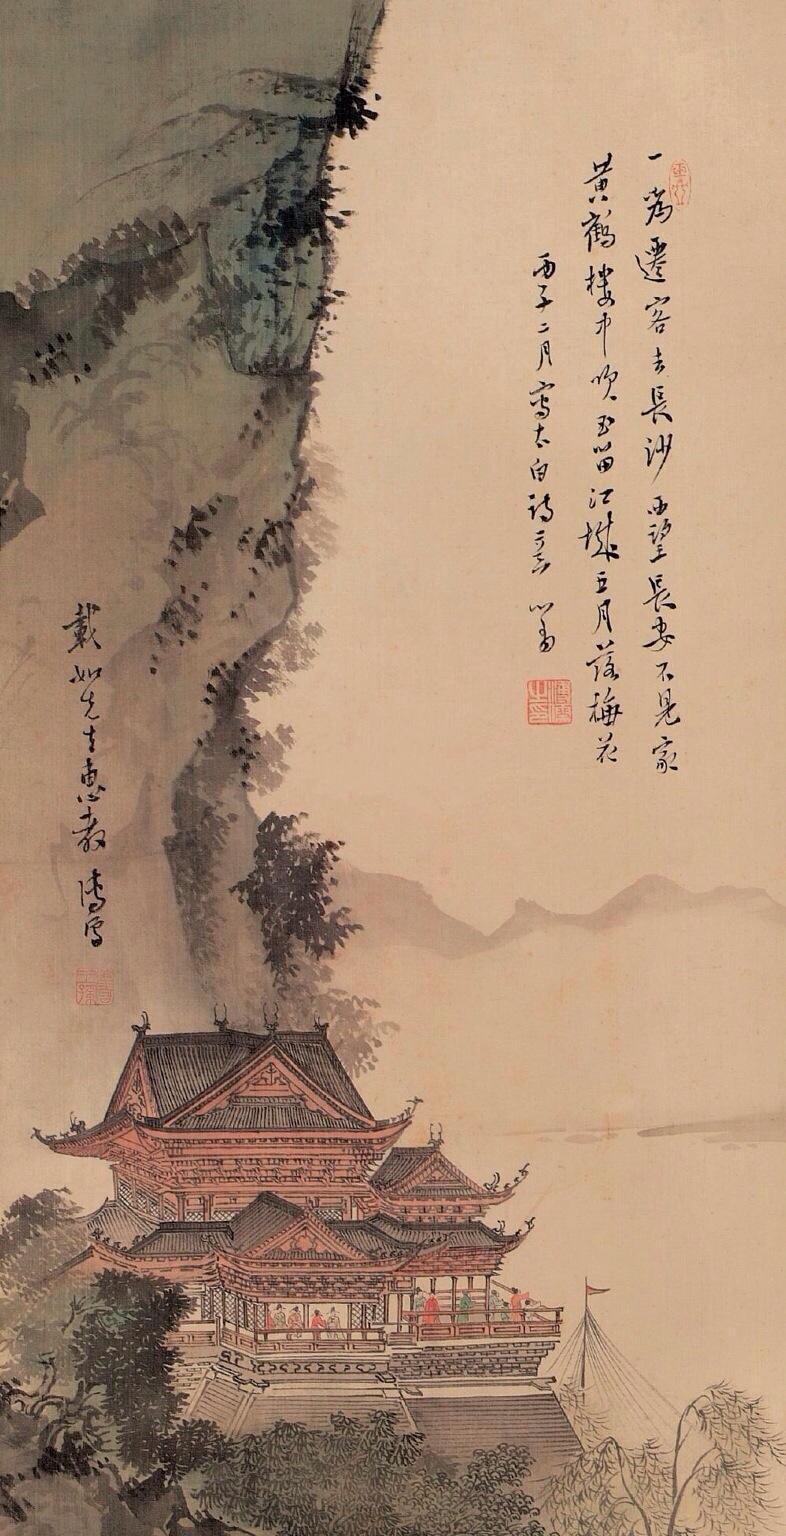 一為遷客去長沙西望長安不見家
黃鶴樓中吹玉笛江城五月落梅花
丙子二月寫太白詩意 心畬
溥儒之印
載如先生惠教 溥儒
舊王孫